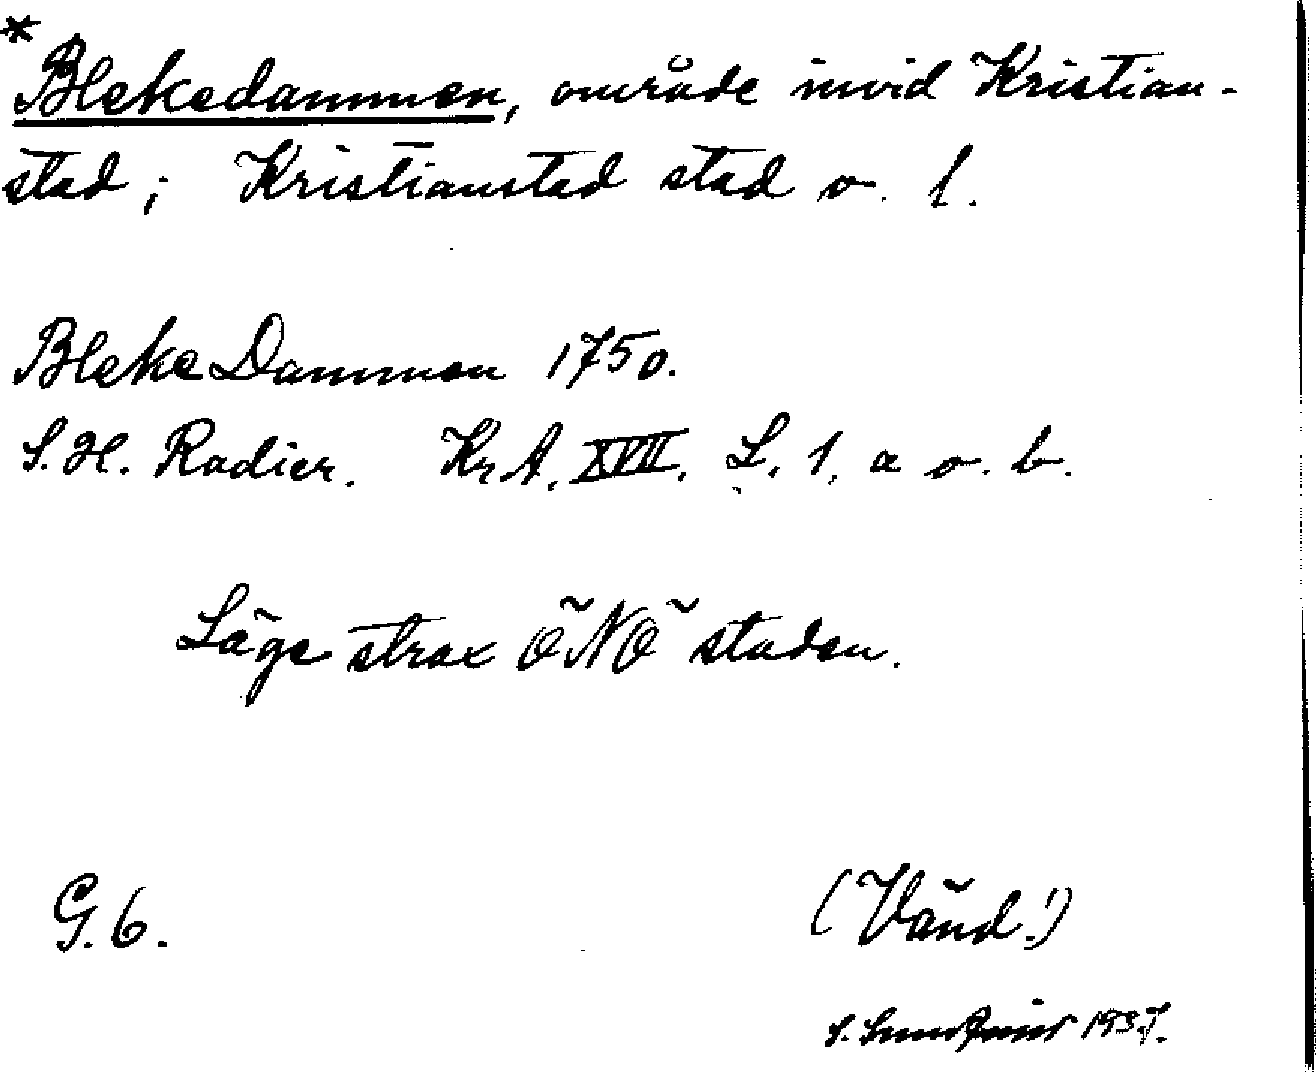 *
Blekedammen, område invid Kristian-
stad; Kristianstad stad o. l.
Bleke Dammen 1750.
S. H. Radier. KrA. XVII. L. 1. a o. b.
Läge strax ÖNÖ staden.
G. 6.
(Vänd!)
S. 1937.